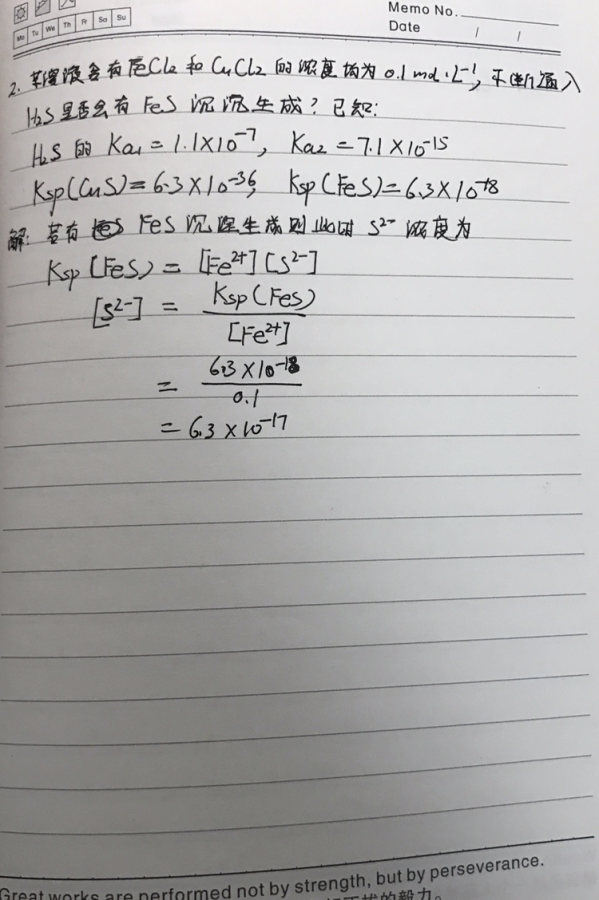 Memo No.
Mo Tu We Th Fr Sa Su
Date / /
2. 某溶液含有FeCl2 和 CuCl2 的浓度均为 0.1 mol·L⁻¹, 不断通入
H₂S 是否会有 FeS 沉淀生成? 已知:
H₂S 的 Ka₁ = 1.1×10⁻⁷, Ka₂ = 7.1×10⁻¹⁵
Ksp(CuS)=6.3×10⁻³⁶, Ksp(FeS)=6.3×10⁻¹⁸
解: 若有 FeS 沉淀生成则此时 S²⁻ 浓度为
Ksp (FeS) = [Fe²⁺][S²⁻]
[S²⁻] = Ksp(FeS)
[Fe²⁺]
= 6.3×10⁻¹⁸
0.1
= 6.3×10⁻¹⁷
Great works are performed not by strength, but by perseverance.
的毅力。